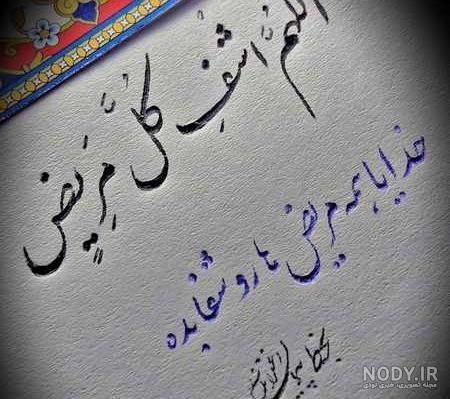 اللهم اشفِ كُلَّ مَرِيضٍ
خدایا همه مریض ها رو شفا بده
NODY.IR
مجله تصویری، خبری نودی